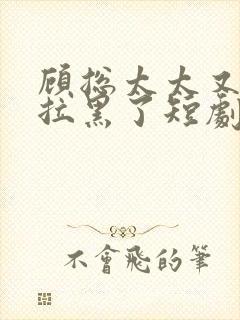 顾总太太又
拉黑了短劇
不會飛的筆